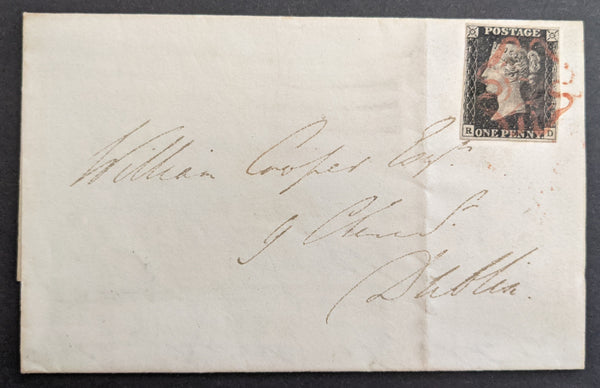 POSTAGE
R ONE PENNY D
William Cooper Esqr.
9
Dublin.